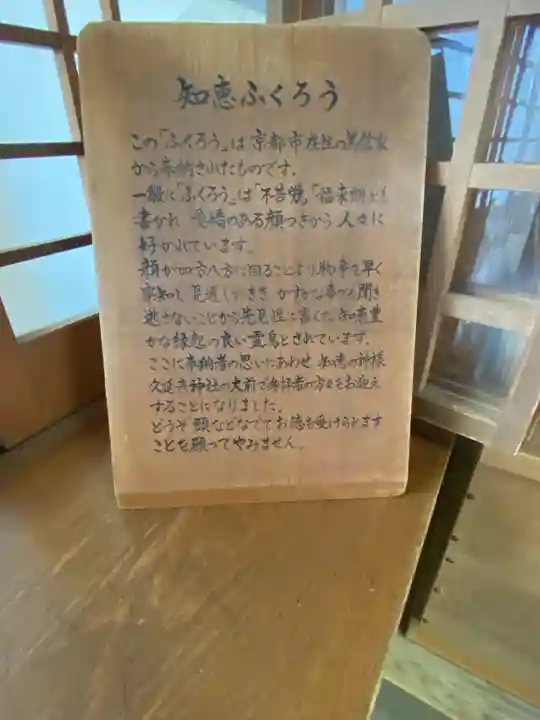 知恵ふくろう
この「ふくろう」は京都市在住の篤信家
から奉納されたものです。
一般に「ふくろう」は「不苦労」「福来朗」とも
書かれ 愛嬌のある顔つきから 人々に
好かれています。
顔が四方八方に回ることより物事を早く
察知し 見通しがきき かすかな音でも聞き
逃さないことから先見性に富んだ知恵豊
かな縁起の良い霊鳥とされています。
ここに奉納者の思いにあわせ 知恵の神様
久延彦神社の大前で参拝者の方々をお迎え
することになりました。
どうぞ 頭などなでてお徳を受けられます
ことを願ってやみません。